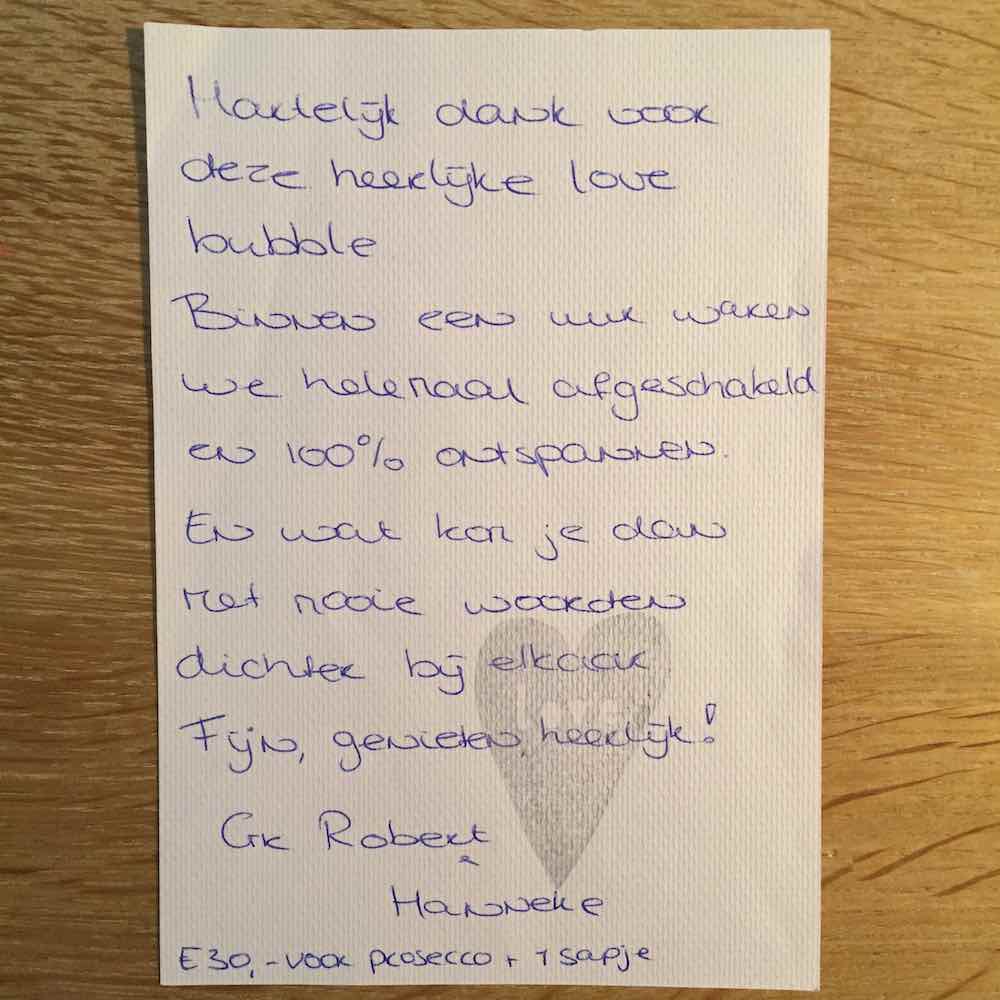 Hartelijk dank voor
deze heerlijke love
bubble
Binnen een uur waren
we helemaal afgeschakeld
en 100% ontspannen.
En wat kon je dan
met mooie woorden
dichter bij elkaar
Love
Fijn, genieten, heerlijk!
Gr Robert
&
Hanneke
€30,- voor prosecco + 1 sapje